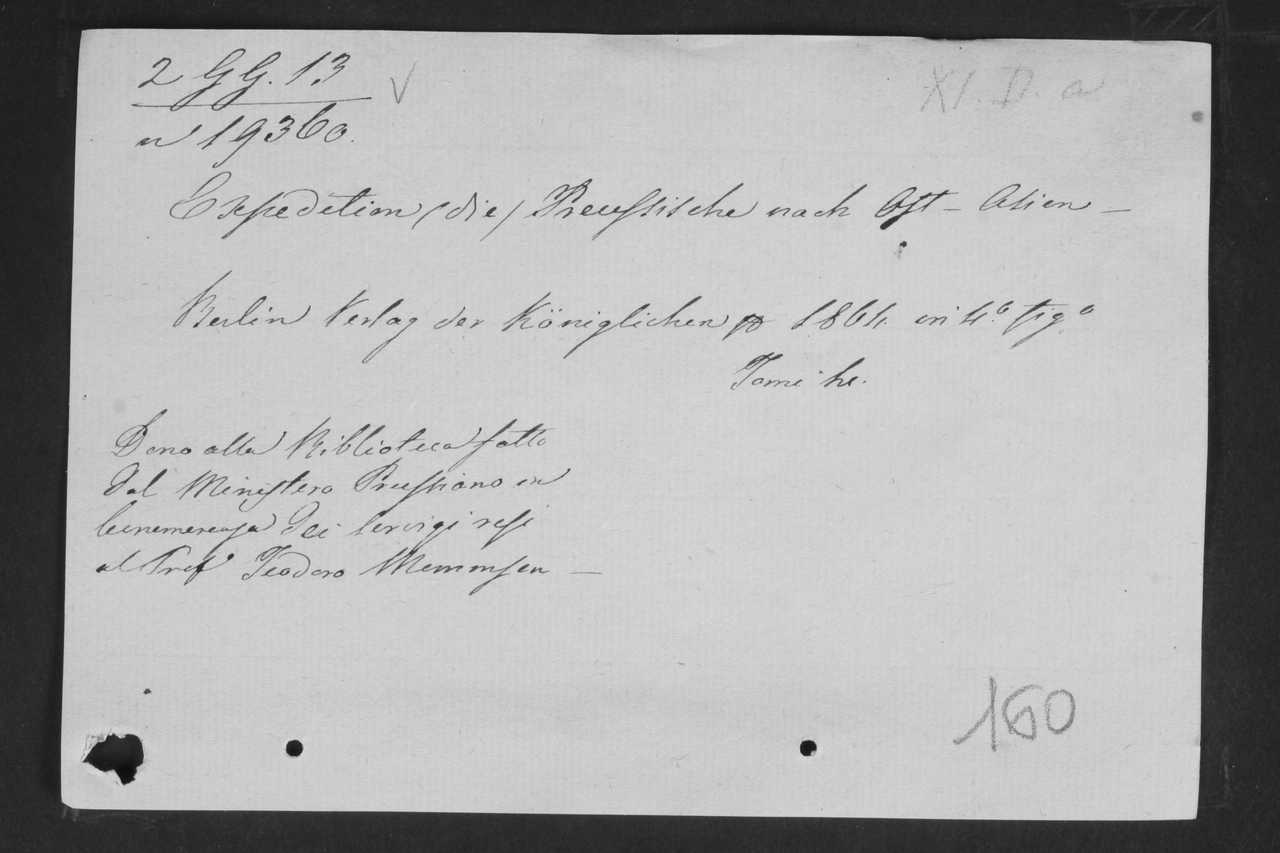 2 GG. 13 V
XI. D. a
n 19360.
Expedition (die) Preussische nach Ost - Asien -
Berlin Verlag der Königlichen 1864. in 4.º figº
Tomi
Dono alla Biblioteca fatto
dal Ministero Prussiano in
benemerenza dei servigi resi
al Prof Teodoro Mommsen —
160